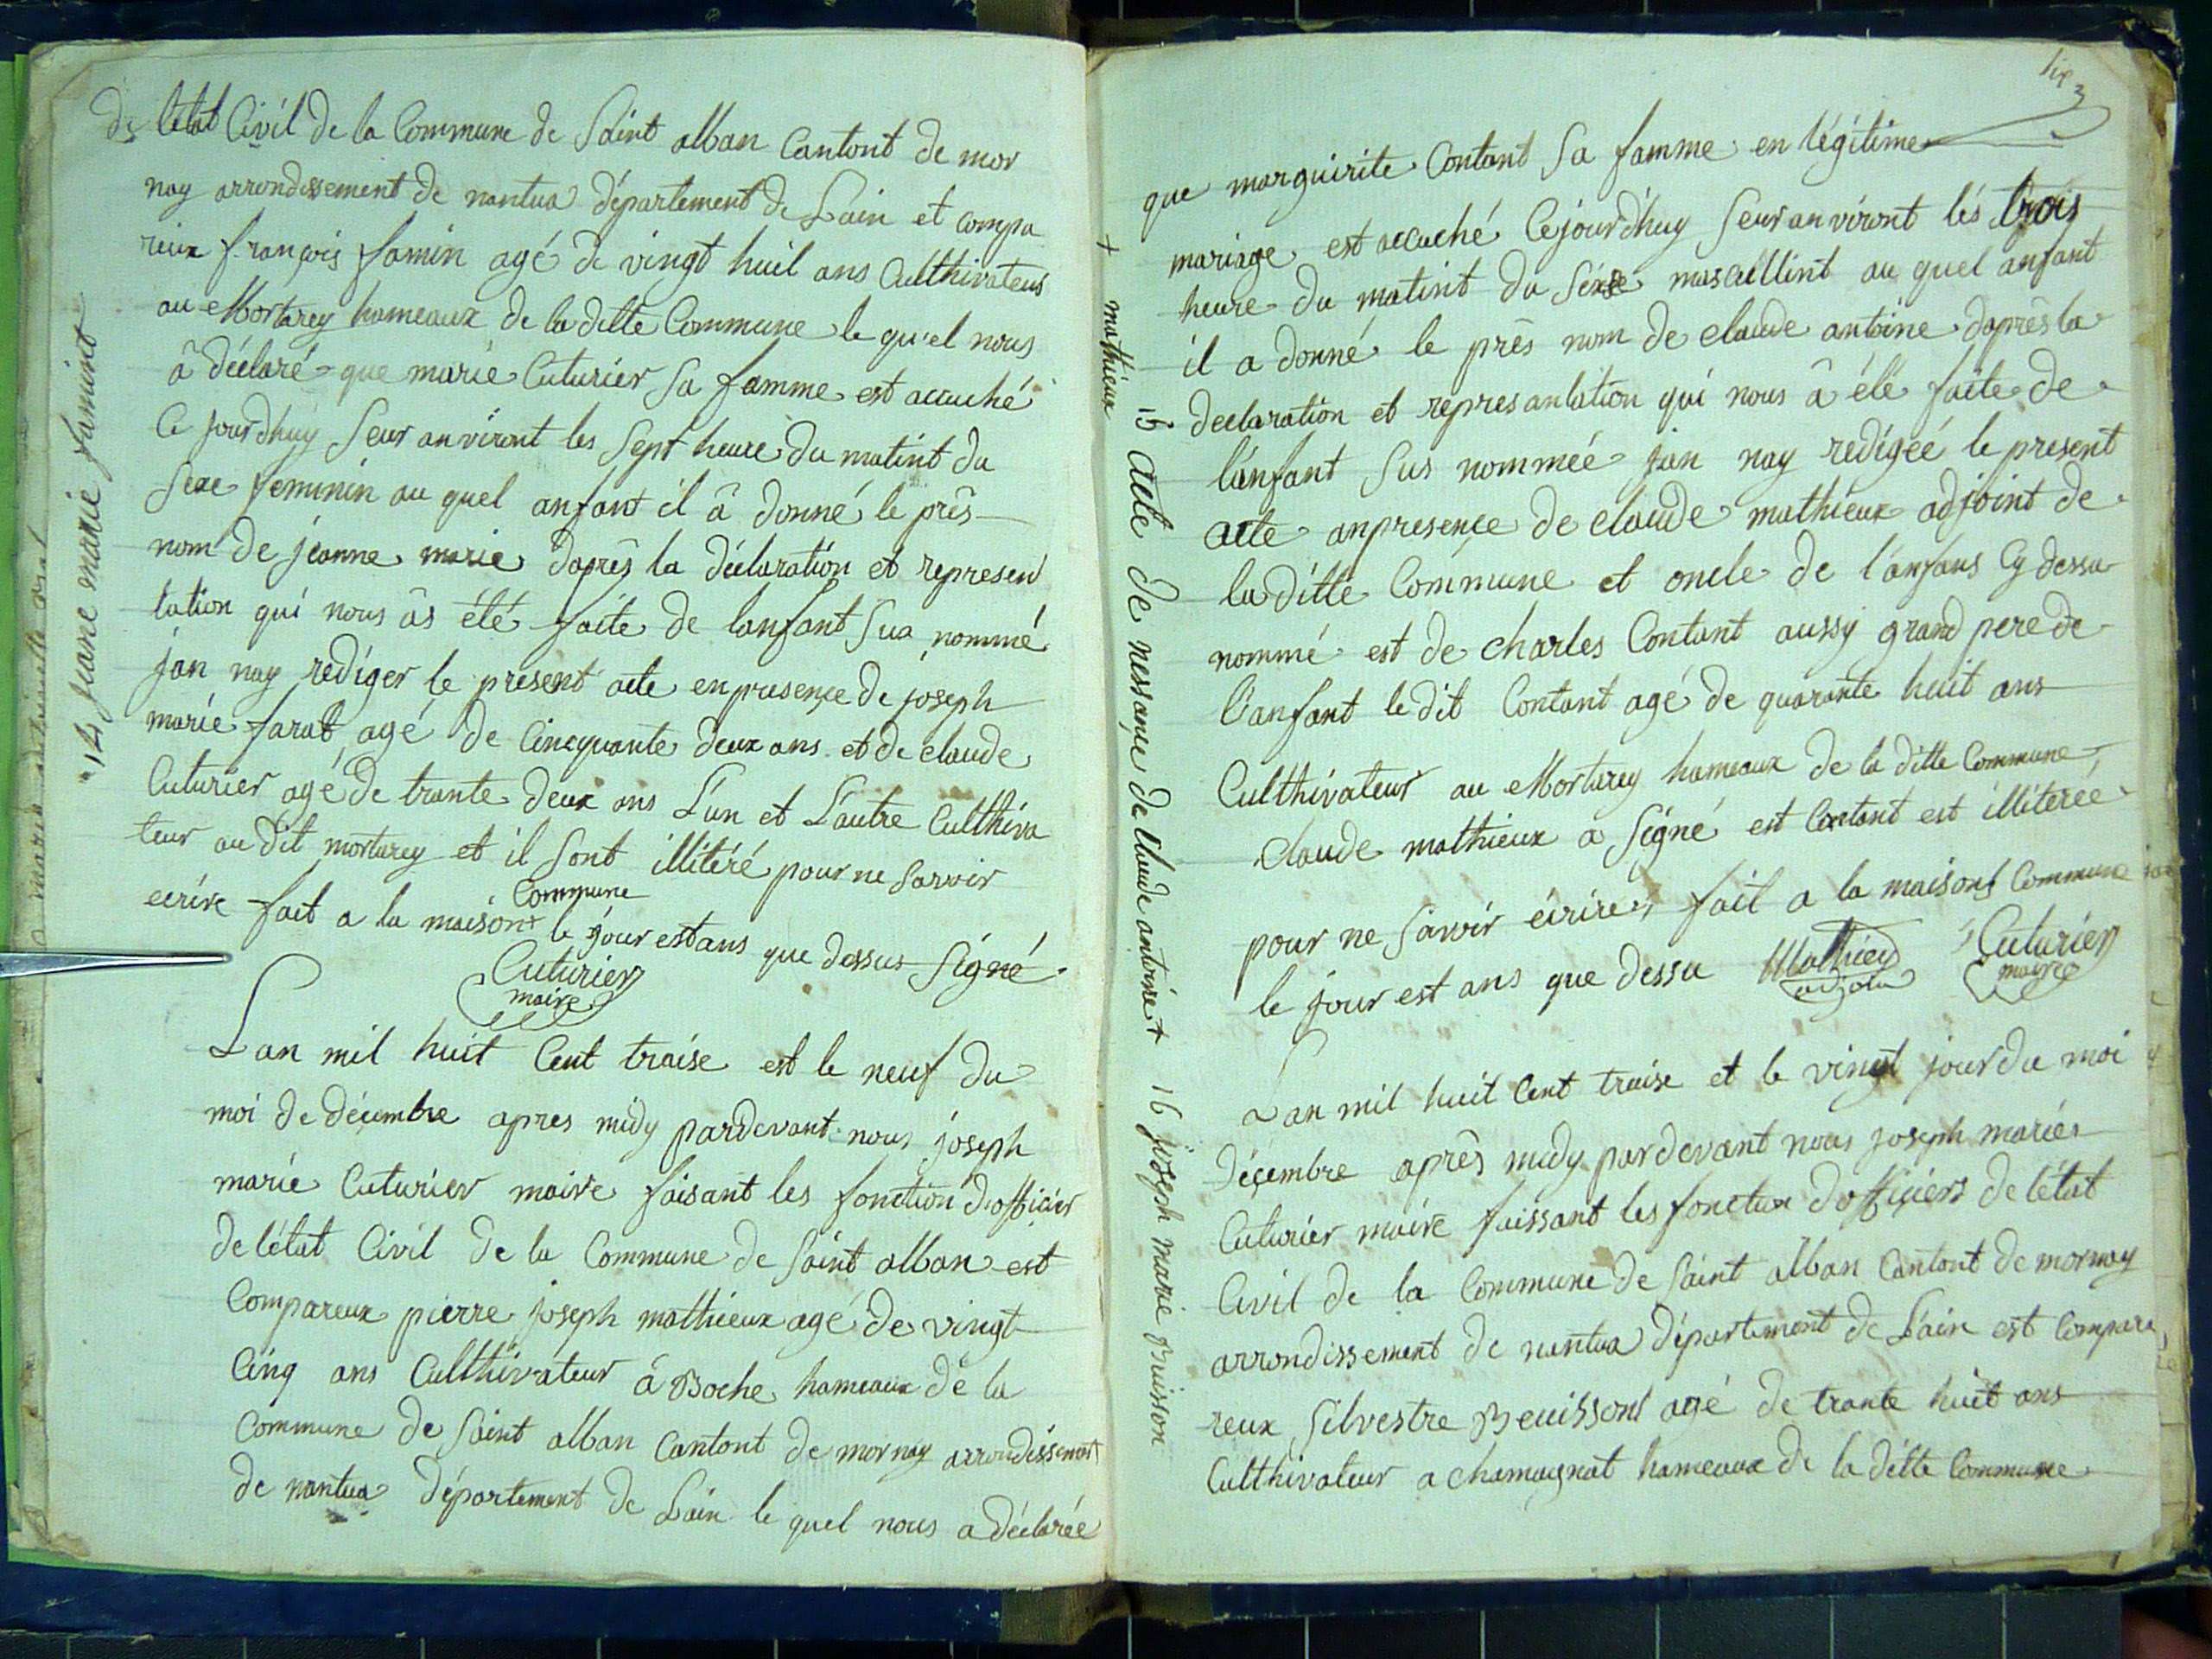 14 jeane marie famint
de letat Civil de la Commune de Saint alban Cantont de mor
nay arrondissement de nantua département de Lain et compa
reux francois famin agé de vingt huit ans Culthivateur
au Mortarey hameaux de la ditte Commune le qu'el nous
â déclaré que marie Cuturier Sa famme est accuché
Ce jourdhuy Seur anviront les Sept heure du matint du
Sexe feminin au quel anfant il â donné le prês
nom de jeanne marie daprês la déclaration et represen
tation qui nous âs été faite de lanfant Sus nommé
jan nay rediger le present acte enpresençe de joseph
marie farat agé de Cincquante deux ans et de claude
Cuturier agé de trante deux ans L'un et L'autre Culthiva
teur au dit mortarey et il Sont illitéré pour ne Savoir
Commune
ecrire fait a la maison + le jour est ans que dessus Signé
Cuturier
maire
Lan mil huit Cent traise est le neuf du
moi de décembre apres midy pardevant nous joseph
marie Cuturier maire faisant les fonction d'officier
de l'état Civil de la Commune de Saint alban est
Compareux pierre joseph mathieux agé de vingt
Cinq ans Culthivateur â Boche hameaux de la
Commune de Saint alban Cantont de mornay arrondissement
de nantua département de Lain le quel nous a déclarée
+ mathieux
15 acte de nessançe de claude antoine +
16 joseph marie Buisson
que marguirite Contant Sa famme en légitime
mariage est accuché Cejourd'huy Seur anviront lés trois
heure du matint du Séxse mascullint au quel anfant
il a donné le près nom de claude antoine daprês la
declaration et represantation qui nous â été faite de
l'anfant Sus nommée jan nay redigée le present
acte anpresençe de claude mathieux adjoint de
la ditte Commune et oncle de l'anfans Cy dessu
nommé est de charles Contant aussy grand pere de
l'anfant le dit Contant agé de quarante huit ans
Culthivateur au Mortarey hameaux de la ditte Commune
Claude mathieux a Signé est Contant est illiterée
pour ne Savoir écrire, fait a la maisont Commune
le jour est ans que dessu Mathieu Cuturier
adjoin mayre
Lan mil huit Cent traise et le vingt jour du moi
Décembre après midy pardevant nous joseph marie
Cuturier maire faissant les fonction d'officiers de l'état
Civil de la Commune de Saint alban Cantont de mornay
arrondissement de nantua département de Lain est Compara
reux Silvestre Beuissont agé de trante huit ans
Culthivateur a chamagnat hameaux de la ditte Commune